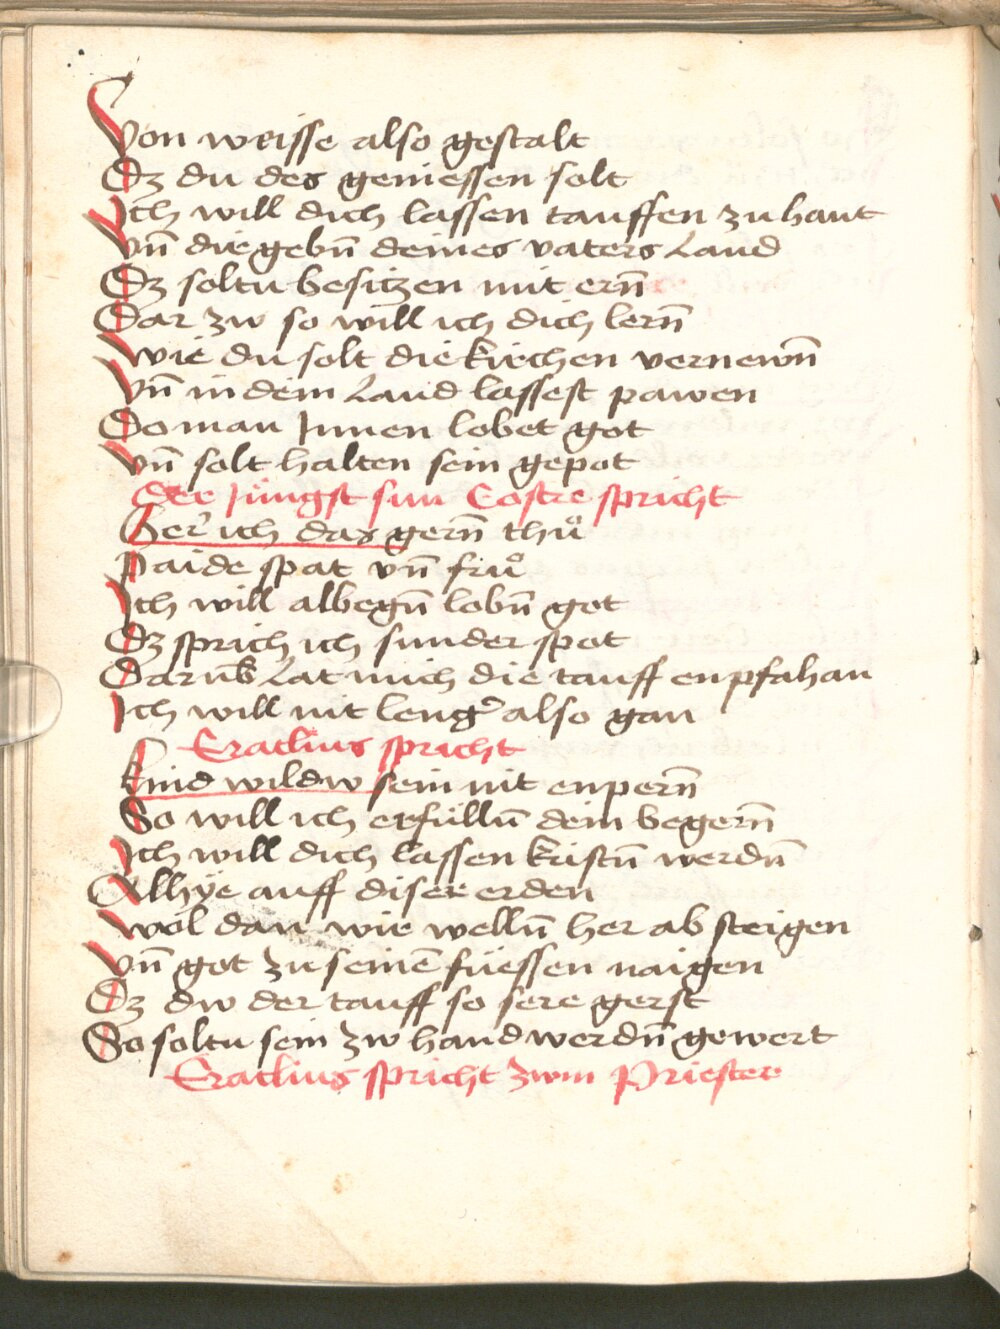 Von weisse also gestalt
Dz du des geniessen solt
Ich will dich lassen tauffen zu hant
Vn̄ die gebn̄ deines vaters Land
Dz soltu besitzen mit ern̄
Dar zw so will ich dich lern̄
Wie du solt die kirchen vernewn̄
Vn̄ in dem Land lassest pawen
Do man Innen lobet got
Vn̄ solt halten sein gepot
Der Jüngst sun Cosdre spricht
Her ich das gern̄ thuͦ
Paide spat vn̄ fruͦ
Ich will albegn̄ lobn̄ got
Dz sprich ich sunder spot
Darūb Lat mich die tauff enpfahan
Ich will nit leng̉ also gan
Eraclius spricht
Kind wildw sein nit enpern̄
So will ich erfülln̄ dein begern̄
Ich will dich lassen kristn̄ werdn̄
Alhye auff diser erden
Wol dan wir welln̄ her ab steigen
Vn̄ got zu seinē füessen naigen
Dz dw der tauff so sere gerst
So soltu sein zw hand werdn̄ gewert
Eraclius spricht zwm Priester